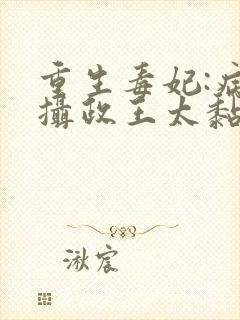 重生毒妃:病
攝政王太黏
湫宸